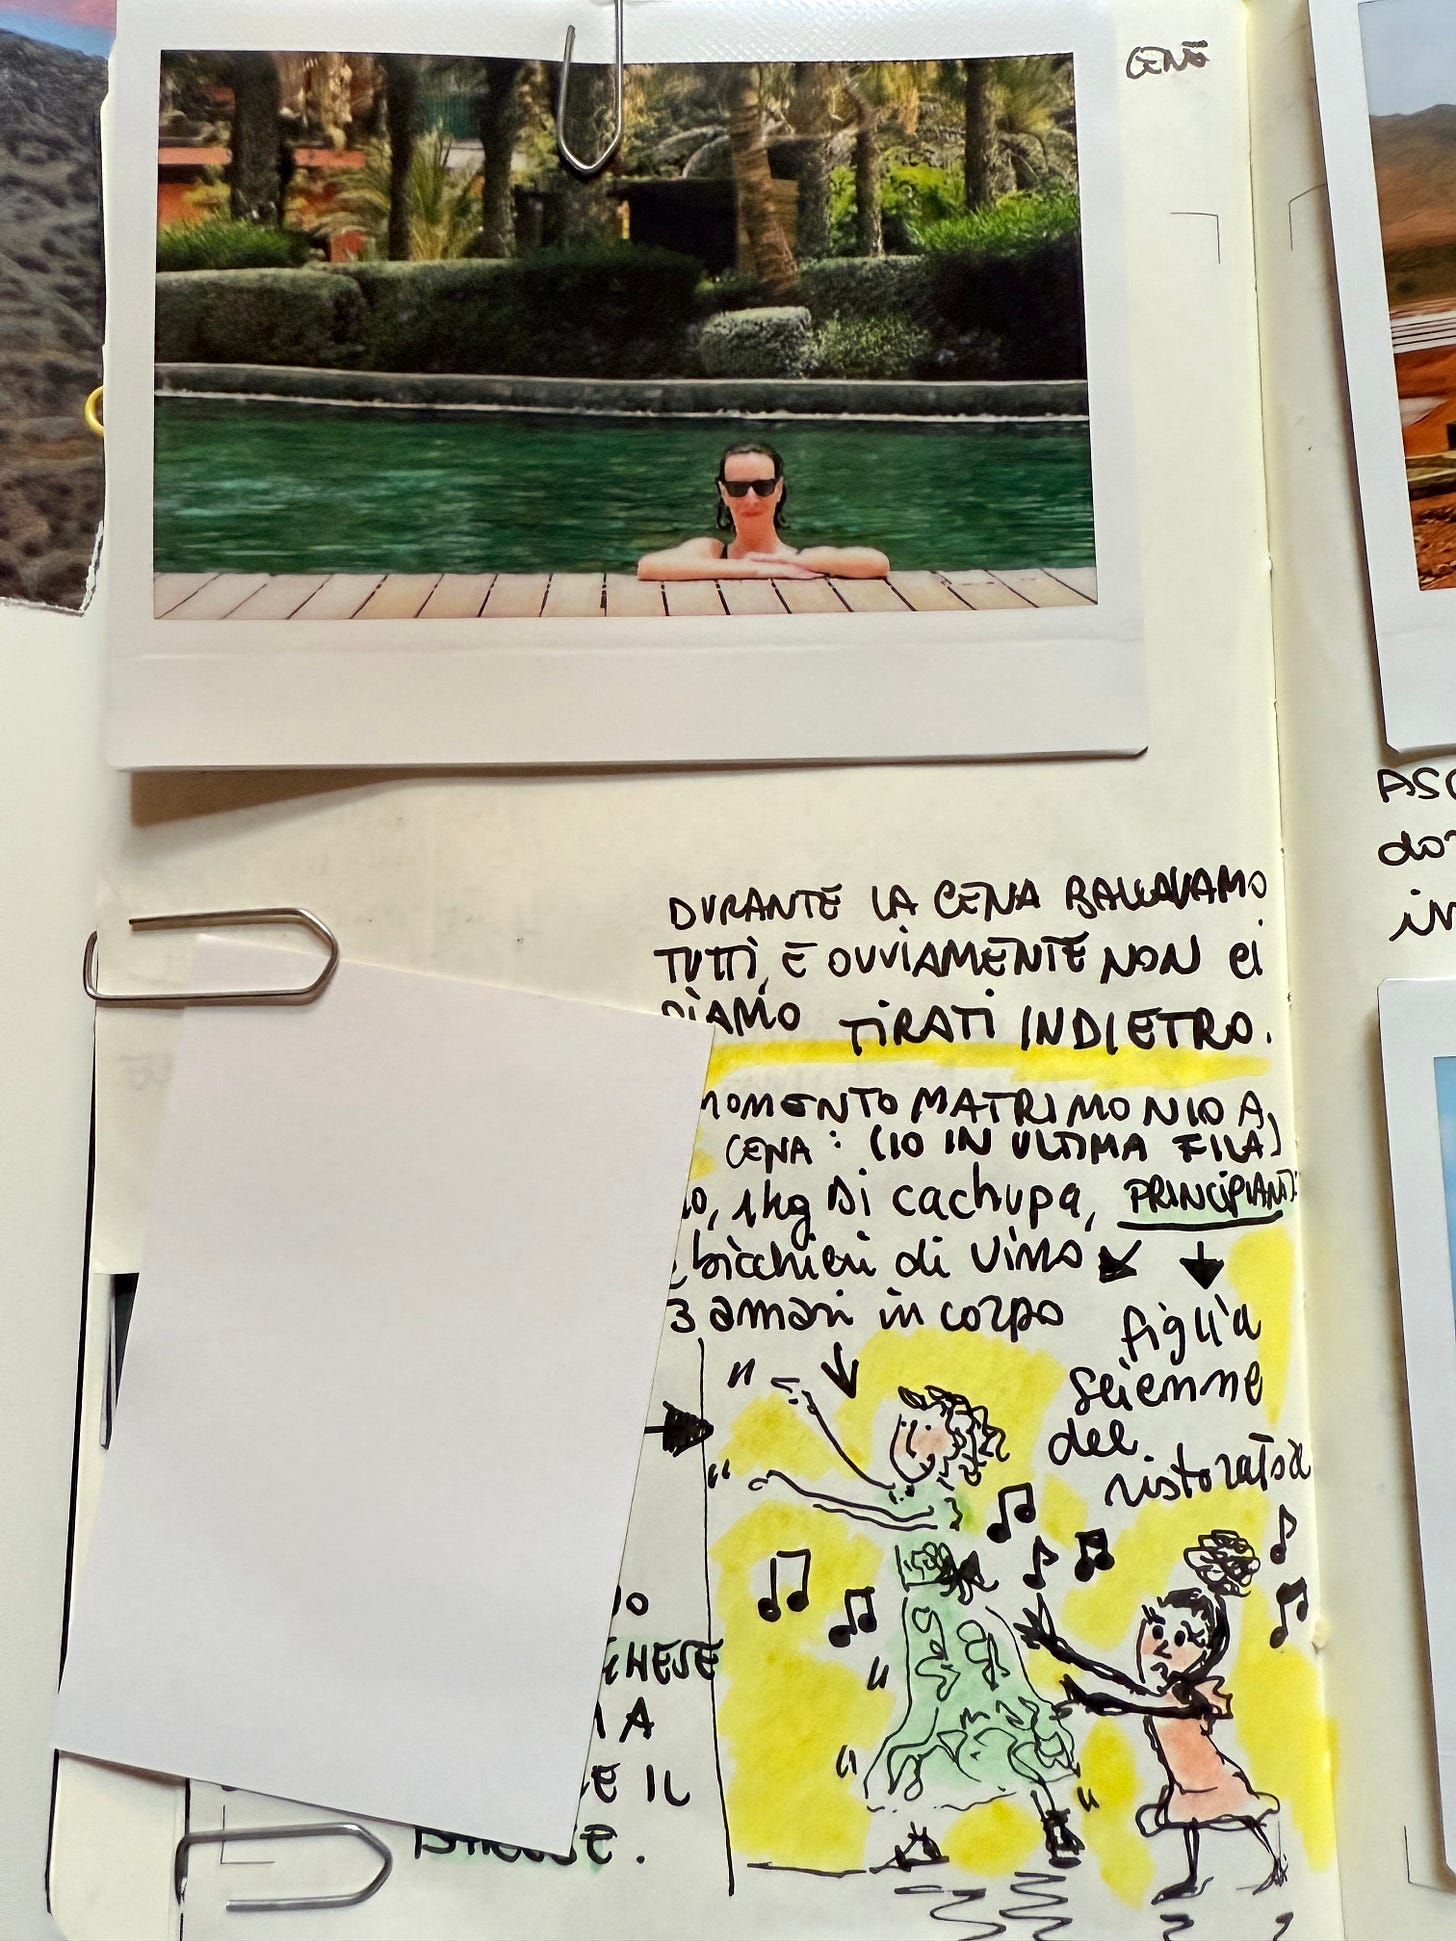 CENA
DURANTE LA CENA BALLAVAMO
TUTTI, E OVVIAMENTE NON CI
SIAMO TIRATI INDIETRO.
MOMENTO MATRIMONIO A
CENA: (IO IN ULTIMA FILA)
1kg di cachupa, PRINCIPIANTI
bicchieri di vino
3 amari in corpo
figlia
seienne
del
ristoratore
GHESE
A
E IL
ASC
do
in